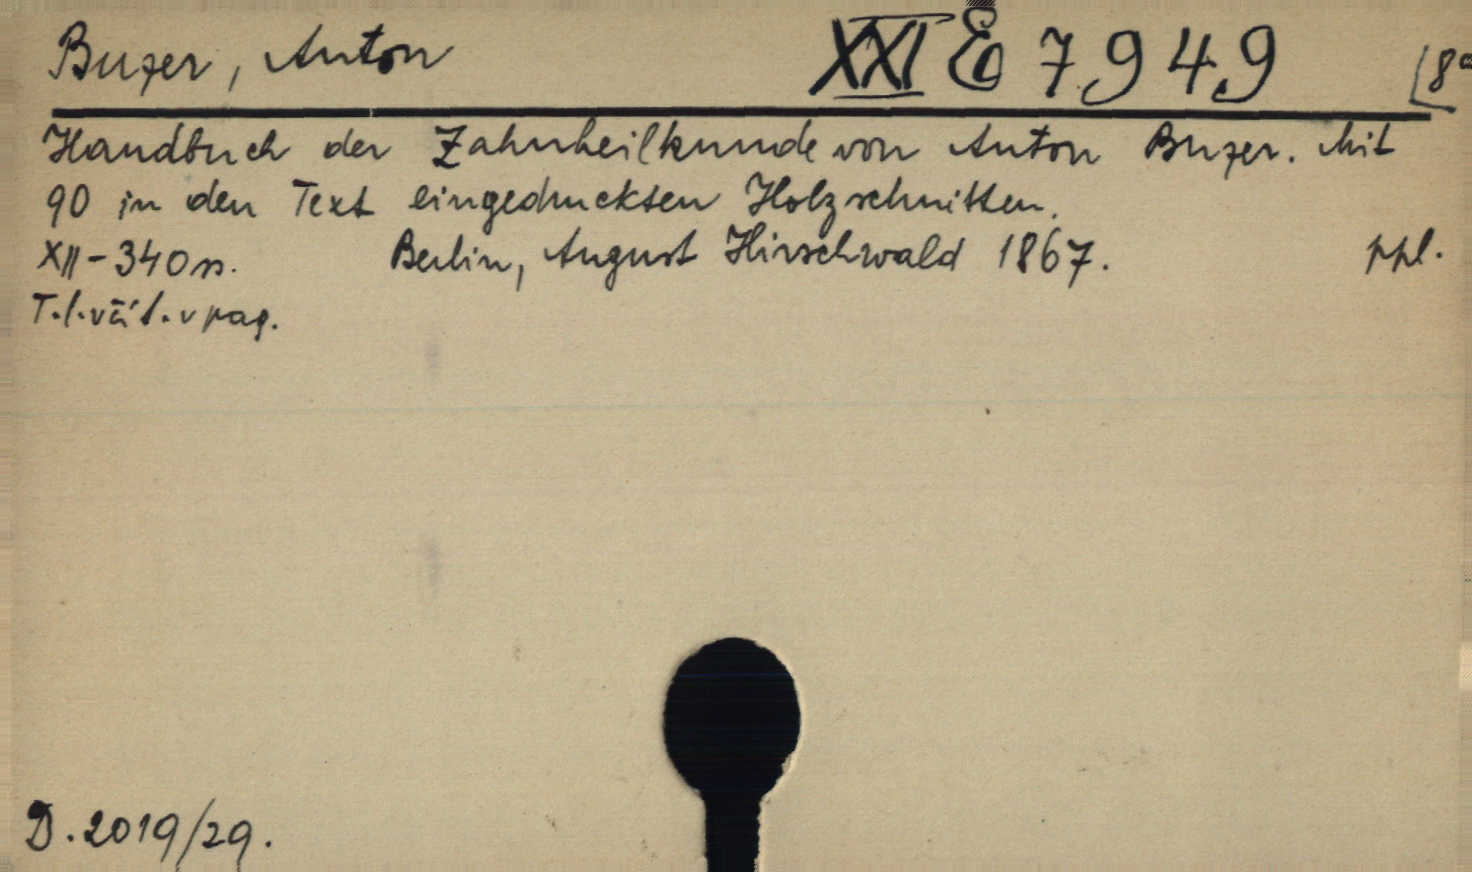 Buzer, Anton XXI E 7949 [8°
Handbuch der Zahnheilkunde von Anton Buzer. Mit
90 in den Text eingedruckten Holzschnitten.
XII-340 s. Berlin, August Hirschwald 1867. ppl.
T.l. včít. v pag.
D. 2019/29.